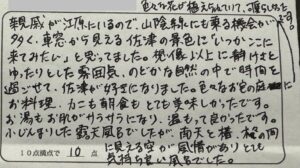 色々な花が植えられていて、癒されました
です。
親戚が江原にいるので、山陰線にも乗る機会が
多く、車窓から見える佐津の景色に「いつかここに
来てみたい」と思ってました。想像以上に静けさと
ゆったりとした雰囲気、のどかな自然の中で時間を
過ごせて、佐津が好きになりました。色々なお宿の
お料理、カニも朝食もとても美味しかったです。
お湯もお肌がサラサラになり、温もって良かったです。
こぢんまりした露天風呂でしたが、南天と橘、
に見える空が風情がありとても
気持ち良い風呂でした。
10点満点で 10 点